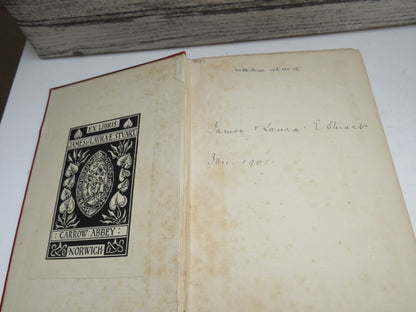 EX LIBRIS
JAMES & LAURA E STUART
CARROW ABBEY
NORWICH
James & Laura E Stuart
Jan. 1901